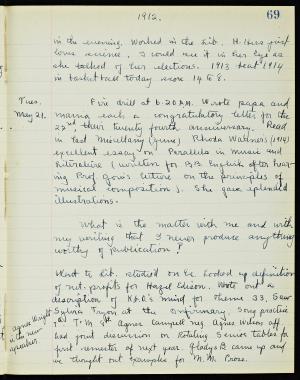 1912.
69
in the evening. Worked in the Lib. H. Hess just
loves science, I could see it in her eyes as
she talked of her elections. 1913 beat 1914
in basket ball today score 14 to 8.
Tues.
May 21.
Fire drill at 6.20 A.M. Wrote papa and
mama each a congratulatory letter for the
22nd, their twenty fourth anniversary. Read
in last Miscellany (June) Rhoda (1914)
excellent essay on Parallels in Music and
Literature (written for B.B. English after hear-
ing Prof Gow's lecture on the principles of
musical composition). She gave splendid
illustrations.
What is the matter with me and with
my writing that I never produce anything
worthy of publication!
Went to Lib. studied on Ec. looked up definition
of net profits for Hazel Edison. Wrote out a
description of mind for theme 33. Saw
Sylvia at the infirmary. Song practice
Agnes Wright
is the new
speaker.
1st T. & M. Agnes Wilson off.
had joint discussion on Rotating Senior tables for
first semester of next year. Gladys B came up and
we thought out examples for M. M. Prose.